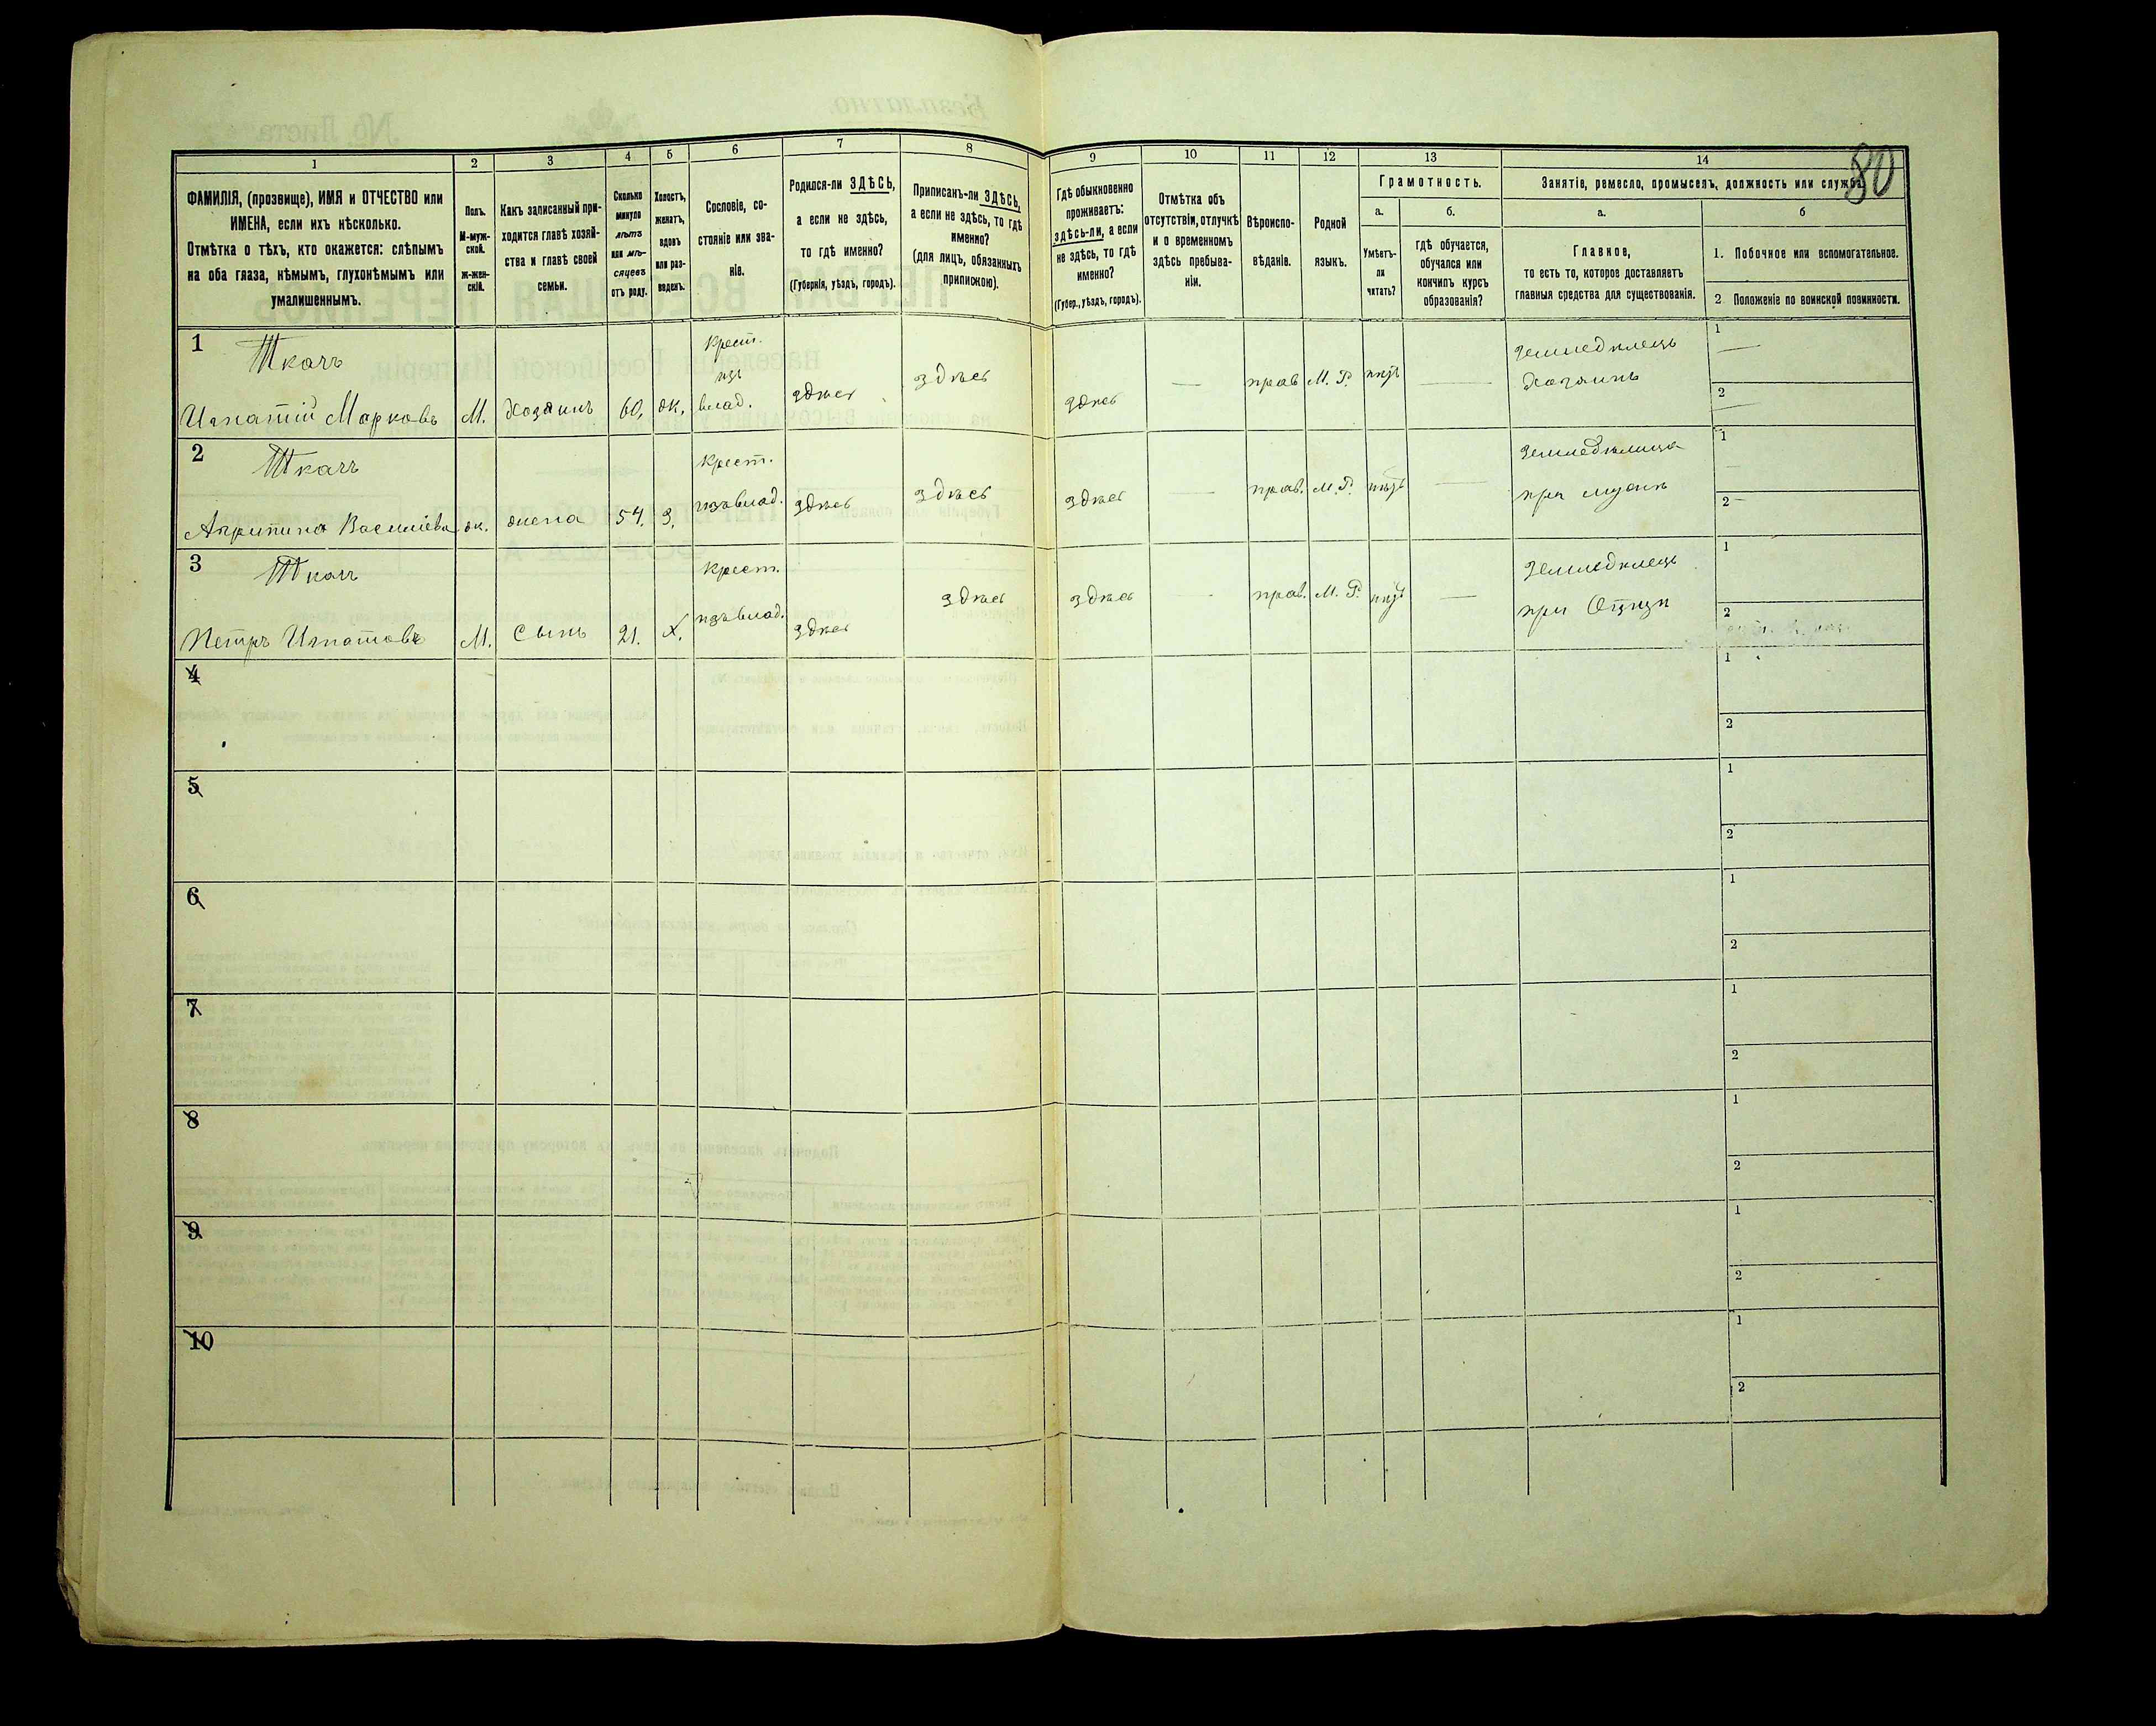 80
1 2 3 4 5 6 7 8 9 10 11 12 13 14
ФАМИЛІЯ, (прозвище), ИМЯ и ОТЧЕСТВО или
ИМЕНА, если ихъ нѣсколько.
Отмѣтка о тѣхъ, кто окажется: слѣпымъ
на оба глаза, нѣмымъ, глухонѣмымъ или
умалишеннымъ.
Полъ.
М-муж-
ской.
Ж-жен-
скій.
Какъ записанный при-
ходится главѣ хозяй-
ства и главѣ своей
семьи.
Сколько
минуло
лѣтъ
или мѣ-
сяцевъ
отъ роду.
Холостъ,
женатъ,
вдовъ
или раз-
веденъ.
Сословіе, со-
стояніе или зва-
ніе.
Родился-ли ЗДѢСЬ,
а если не здѣсь,
то гдѣ именно?
(Губернія, уѣздъ, городъ).
Приписанъ-ли ЗДѢСЬ,
а если не здѣсь, то гдѣ
именно?
(для лицъ, обязанныхъ
припискою).
Гдѣ обыкновенно
проживаетъ:
здѣсь-ли, а если
не здѣсь, то гдѣ
именно?
(Губер., уѣздъ, городъ).
Отмѣтка объ
отсутствіи, отлучкѣ
и о временномъ
здѣсь пребыва-
ніи.
Вѣроиспо-
вѣданіе.
Родной
языкъ.
Грамотность.
а.
Умѣетъ-
ли
читать?
б.
гдѣ обучается,
обучался или
кончилъ курсъ
образованія?
Занятіе, ремесло, промыселъ, должность или служба
а.
Главное,
то есть то, которое доставляетъ
главныя средства для существованія.
б
1. Побочное или вспомогательное.
2. Положеніе по воинской повинности.
1 Ткачъ
Игнатій Марковъ М. Хозяинъ 60, ж, Крест. изъ влад. здѣсь здѣсь здѣсь — прав М. Р. нѣтъ — Земледѣлецъ Хозяинъ 1 — 2 —
2 Ткачъ
Агрипина Василіева ж. жена 54, З, Крест. изъ влад. здѣсь здѣсь здѣсь — прав. М. Р. нѣтъ — Земледѣлица при мужѣ 1 — 2 —
3 Ткачъ
Петръ Игнатовъ М. Сынъ 21. Х. Крест. изъ влад. здѣсь здѣсь здѣсь — прав. М. Р. нѣтъ — Земледѣлецъ при Отцѣ 1 2
4 1 2
5 1 2
6 1 2
7 1 2
8 1 2
9 1 2
10 1 2